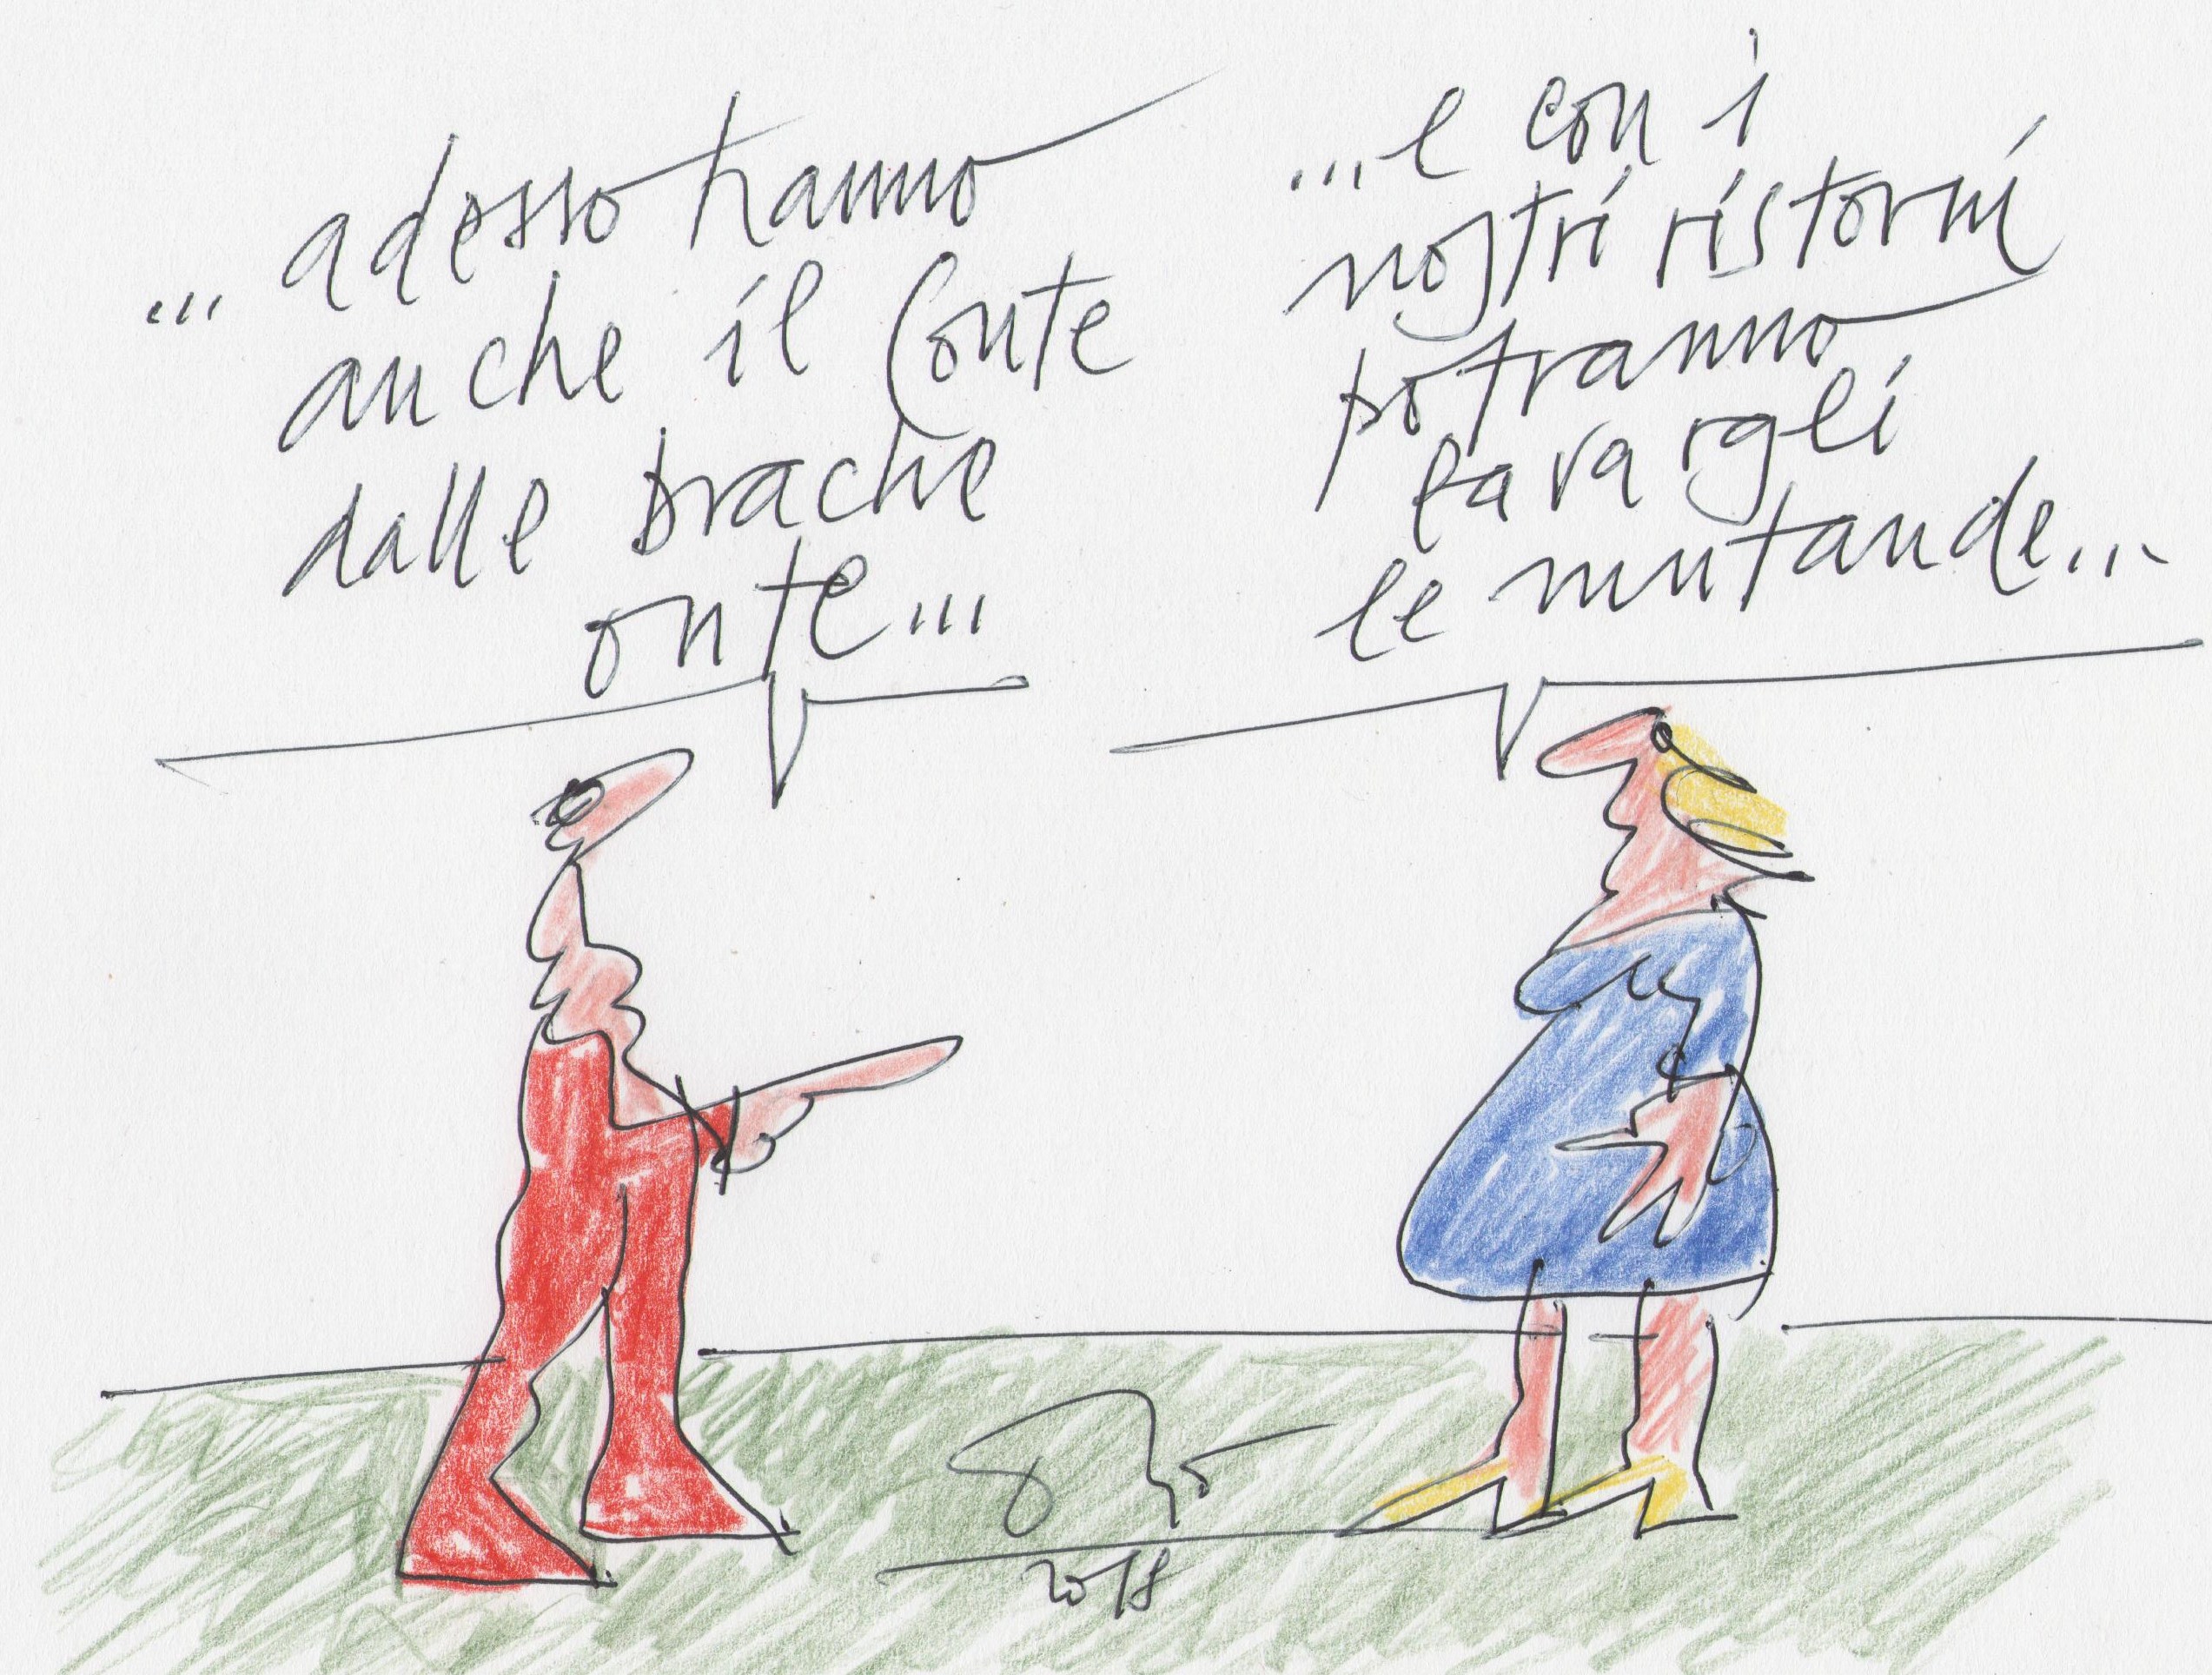 ... adesso hanno
anche il Conte
dalle brache
onte...
...e con i
nostri ristorni
potranno
lavargli
le mutande...
2018